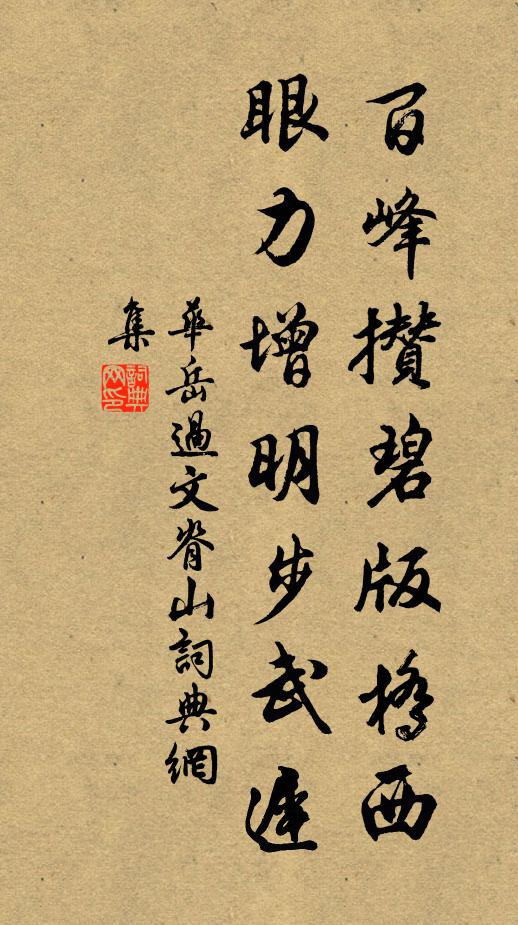 百峰攅碧版橋西
眼力增明步武遲
華岳過文脊山詞典網
集
詞典
网印